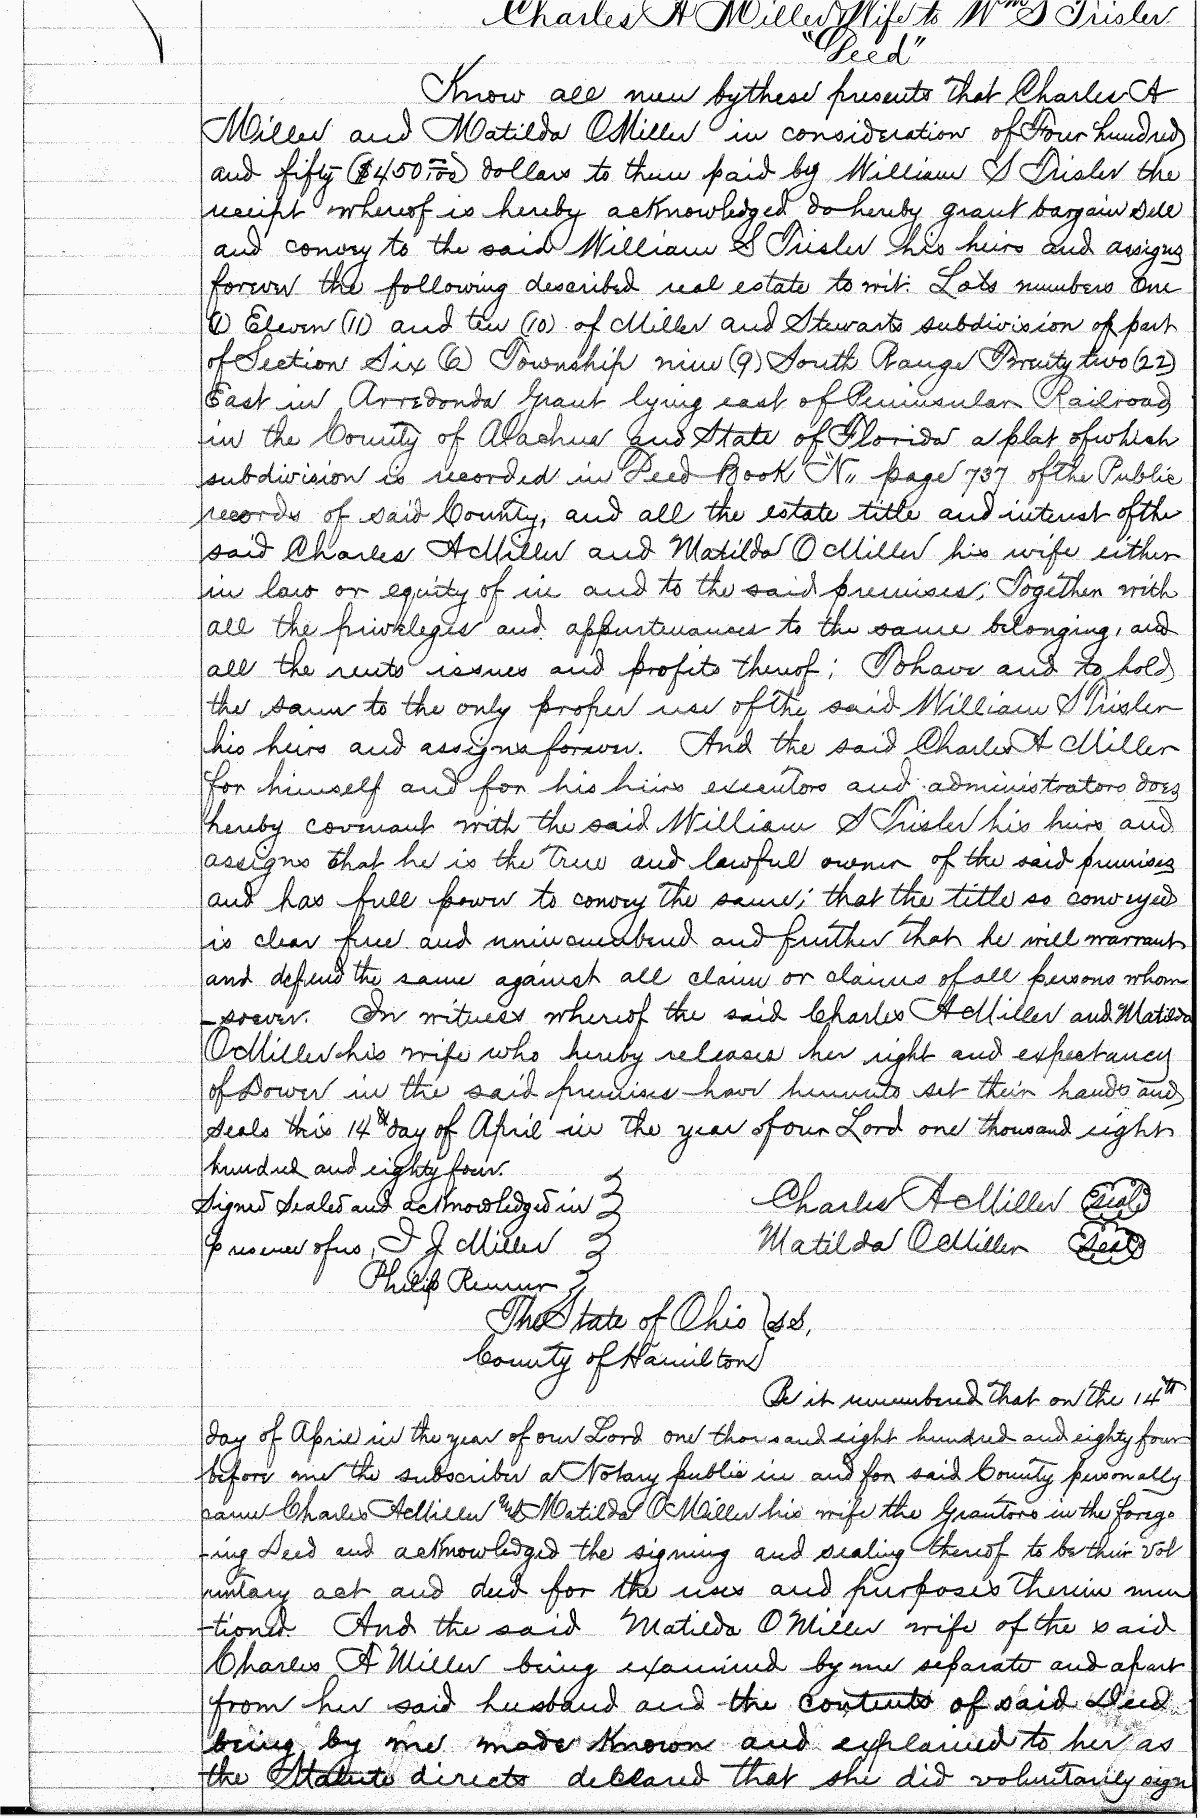 Charles A Miller & Wife to Wm S Trisler
"Deed"
Know all men by these presents that Charles A
Miller and Matilda O Miller in consideration of Four hundred
and fifty ($450.00) dollars to them paid by William S Trisler the
receipt whereof is hereby acknowledged do hereby grant bargain sell
and convey to the said William S Trisler his heirs and assigns
forever the following described real estate to wit: Lots numbers One
(1) Eleven (11) and ten (10) of Miller and Stewarts subdivision of part
of Section Six (6) Township nine (9) South Range Twenty two (22)
East in Arredonda Grant lying east of Peninsular Railroad
in the County of Alachua and State of Florida a plat of which
subdivision is recorded in Deed Book "N" page 737 of the Public
records of said County, and all the estate title and interest of the
said Charles A Miller and Matilda O Miller his wife either
in law or equity of in and to the said premises; Together with
all the privileges and appurtenances to the same belonging, and
all the rents issues and profits thereof; To have and to hold
the same to the only proper use of the said William S Trisler
his heirs and assigns forever. And the said Charles A Miller
for himself and for his heirs executors and administrators does
hereby covenant with the said William S Trisler his heirs and
assigns that he is the True and lawful owner of the said premises
and has full power to convey the same; that the title so conveyed
is clear free and unincumbered and further that he will warrant
and defend the same against all claim or claims of all persons whom
-soever. In witness whereof the said Charles A Miller and Matilda
O Miller his wife who hereby releases her right and expectancy
of Dower in the said premises have hereunto set their hands and
seals this 14th day of April in the year of our Lord one thousand eight
hundred and eighty four.
Signed Sealed and acknowledged in
presence of us, I J Miller
Philip Renner
Charles A Miller (Seal)
Matilda O Miller (Seal)
The State of Ohio } SS.
County of Hamilton
Be it remembered that on the 14th
day of April in the year of our Lord one thousand eight hundred and eighty four
before me the subscriber a Notary public in and for said County personally
came Charles A Miller and Matilda O Miller his wife the Grantors in the forego
-ing Deed and acknowledged the signing and sealing thereof to be their vol
untary act and deed for the uses and purposes Therein men
-tioned. And the said Matilda O Miller wife of the said
Charles A Miller being examined by me separate and apart
from her said husband and the contents of said Deed
being by me made Known and explained to her as
the Statute directs declared that she did voluntarily sign